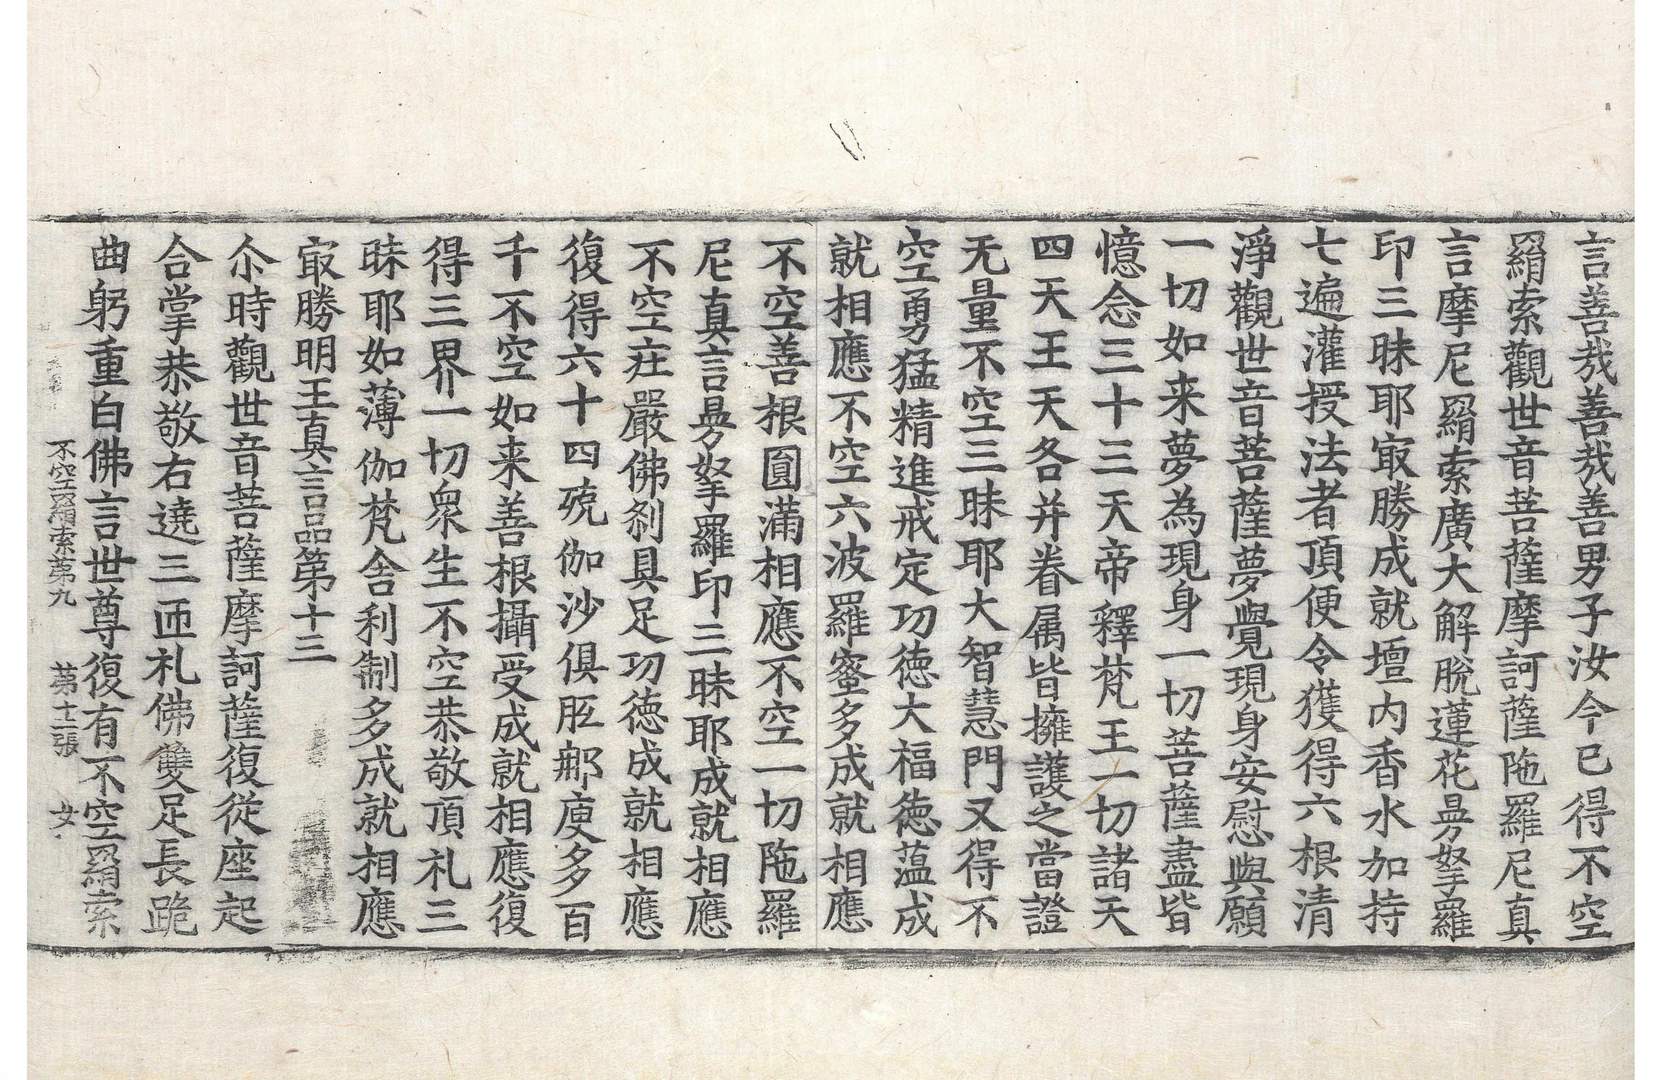 言善哉善哉善男子汝今已得不空
羂索觀世音菩薩摩訶薩陁羅尼真
言摩尼羂索廣大解脫蓮花曼拏羅
印三昧耶㝡勝成就壇內香水加持
七遍灌授法者頂便令獲得六根清
淨觀世音菩薩夢覺現身安慰與願
一切如来夢為現身一切菩薩盡皆
憶念三十三天帝釋梵王一切諸天
四天王天各并眷属皆擁護之當證
无量不空三昧耶大智慧門又得不
空勇猛精進戒定功徳大福徳蕰成
就相應不空六波羅蜜多成就相應
不空善根圎滿相應不空一切陁羅
尼真言曼拏羅印三昧耶成就相應
不空庄嚴佛刹具足功徳成就相應
復得六十四殑伽沙俱胝那庾多百
千不空如来善根攝受成就相應復
得三界一切衆生不空恭敬頂礼三
昧耶如薄伽梵舍利制多成就相應
㝡勝明王真言品第十三
尒時觀世音菩薩摩訶薩復從座起
合掌恭敬右遶三匝礼佛雙足長跪
曲躬重白佛言世尊復有不空羂索
不空羂索第九　第十二張　女